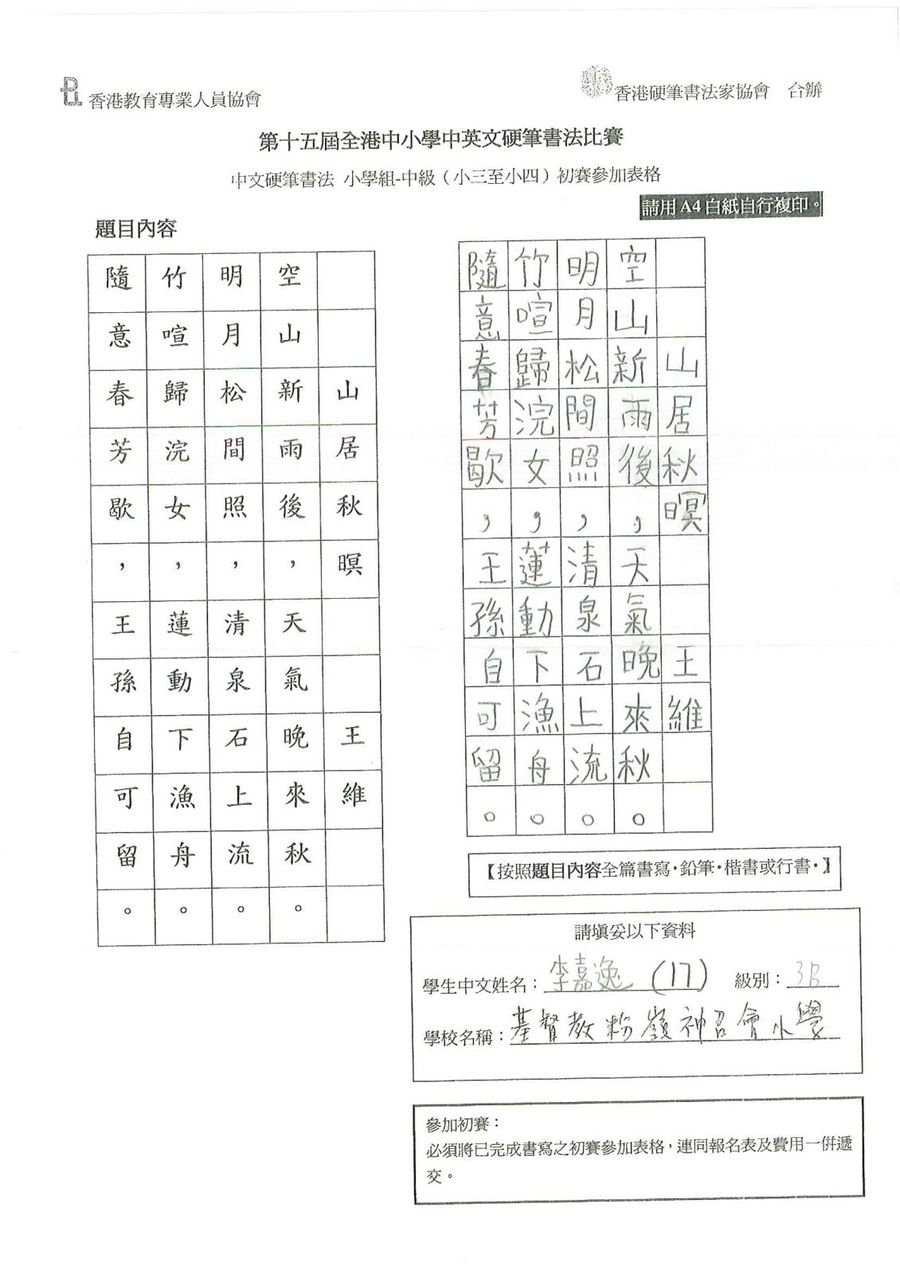 香港教育專業人員協會
香港硬筆書法家協會 合辦
第十五屆全港中小學中英文硬筆書法比賽
中文硬筆書法 小學組-中級（小三至小四）初賽參加表格
請用 A4 白紙自行複印。
題目內容
山居秋暝 王維
空山新雨後，天氣晚來秋。
明月松間照，清泉石上流。
竹喧歸浣女，蓮動下漁舟。
隨意春芳歇，王孫自可留。
山居秋暝 王維
空山新雨後，天氣晚來秋。
明月松間照，清泉石上流。
竹喧歸浣女，蓮動下漁舟。
隨意春芳歇，王孫自可留。
【按照題目內容全篇書寫‧鉛筆‧楷書或行書‧】
請填妥以下資料
學生中文姓名：李嘉逸 (17) 級別：3B
學校名稱：基督教粉嶺神召會小學
參加初賽：
必須將已完成書寫之初賽參加表格，連同報名表及費用一併遞
交。